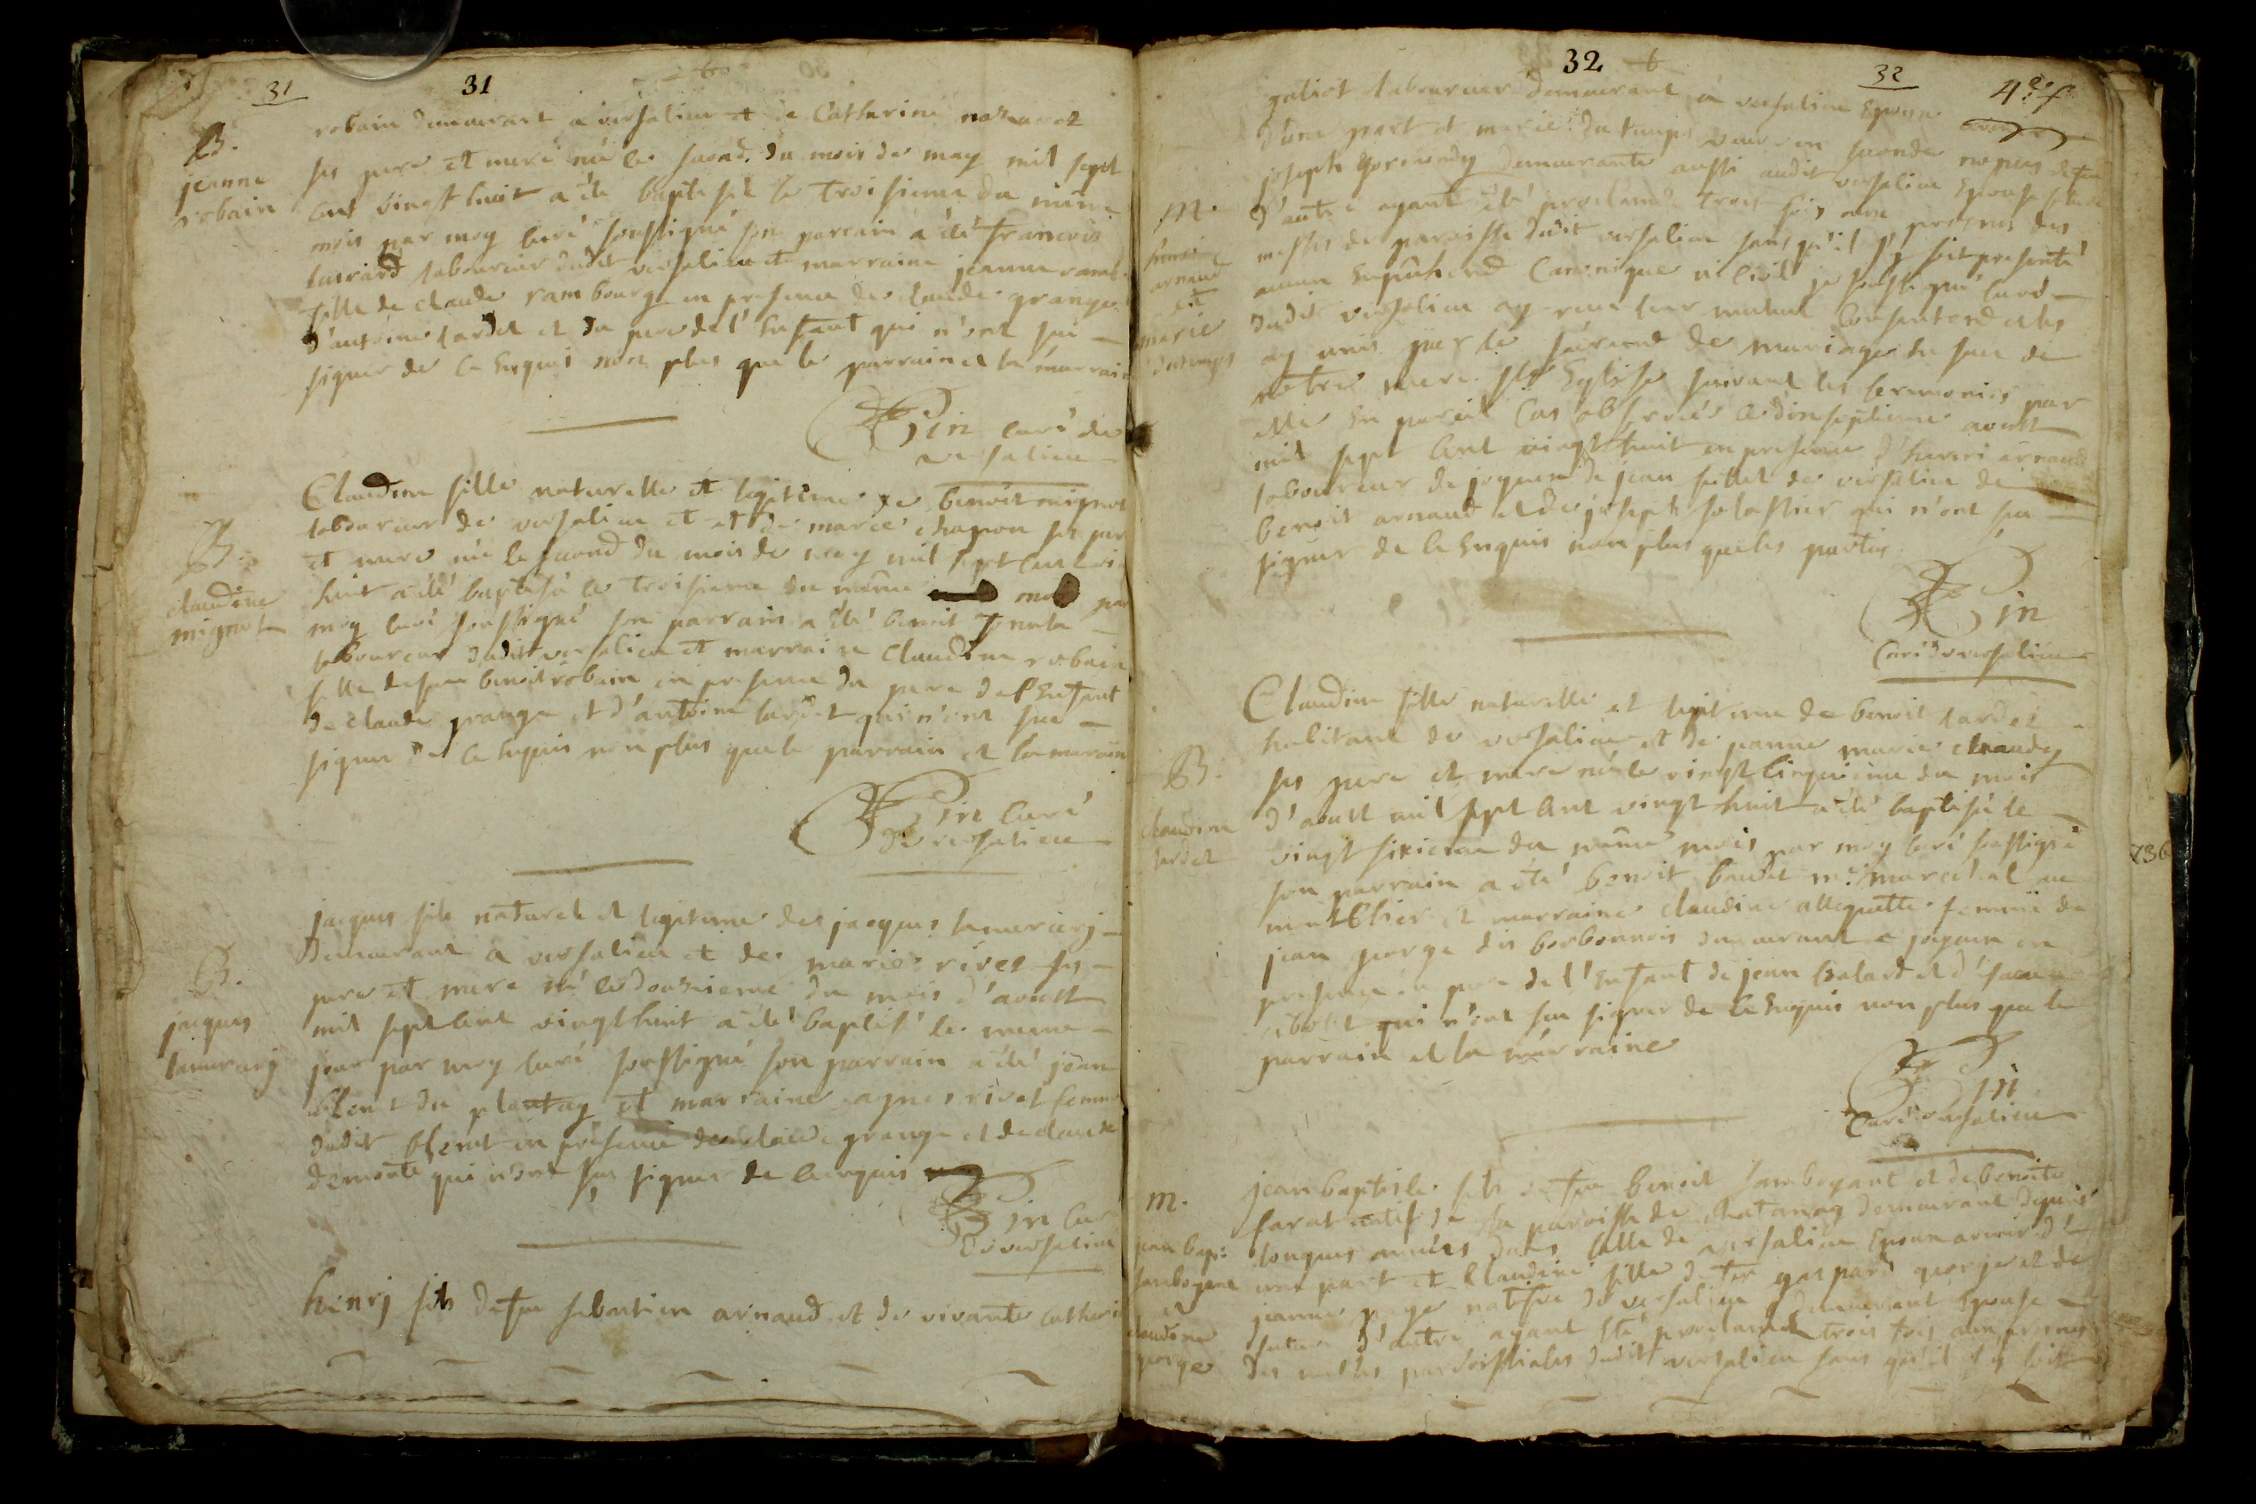 31
31
B.
jeanne
robain
robain demeurant a versalieu et de Catherine
ses pere et mere née le second du mois de may mil sept
cent vingt huit a été baptisée le troisieme du même
mois par moy curé soussigné son parrain a été francois
laboureur dudit versalieu et marraine jeanne
fille de claude rambourg en presence de claude grange
d'antoine tardet et du pere de l'Enfant qui n'ont su
signer de ce Enquis non plus que le parrain et la marraine
Gin curé de
versalieu
B.
claudine
mignot
Claudine fille naturelle et legitime de benoit mignot
laboureur de versalieu et et de marie chapon ses pere
et mere née le second du mois de may mil sept cent vi
huit a été baptisée le troisieme du même mois par
moy curé soussigné son parrain a été benoit
laboureur dudit versalieu et marraine Claudine robain
fille de feu benoit robain en presence du pere de l'Enfant
de claude grange et d'antoine tardet qui n'ont su
signer de ce Enquis non plus que le parrain et la marraine
Gin Curé
de versalieu
B.
jacques
jacques fils naturel et legitime de jacques
Demeurant a versalieu et de marie rivet ses
pere et mere né le douzieme du mois d'aoust
mil sept cent vingt huit a été baptisé le meme
jour par moy curé soussigné son parrain a été jean
blent du plantay et marraine agnes rivet femme
dudit blent en présence de claude grange et de claude
demonte qui n'ont su signer de ce enquis
Gin Cu
de versalieu
henrj fils de feu sebastien arnaud et de vivante catheri
32
32
galiot laboureur demeurant a versalieu Epoux
d'une part et marie dutemps veuve en seconde nopces de feu
joseph demeurante aussi audit versalieu Epouse
M.
henri
arnaud
et
marie
dutemps
d'autre ayant été proclamés trois fois aux prosnes des
messes de paroisse dudit versalieu sans qu'il s'y soit presenté
aucun Empêchemt Canonique ni civil je soussigné curé
dudit versalieu ay receu leur mutuel Consentemt et les
ay unis par le sacremt de mariage en face de
nôtre mere ste Eglise suivant les ceremonies par
elle En pareil Cas observées le dixseptieme aoust
mil sept Cent vingt huit en presence d'henri arnaud
laboureur de joyeux de jean fillet de versalieu de
benoit arnaud et de joseph qui n'ont su
signer de ce Enquis non plus que les parties
Gin
Curé de versalieu
B.
claudine
tardet
Claudine fille naturelle et legitime de benoit tardet
habitant de versalieu et de jeanne marie
ses pere et mere née le vingt cinquieme du mois
d'aoust mil sept Cent vingt huit a été baptisée le
vingt sixieme du même mois par moy curé soussigné
son parrain a été benoit me marechal au
montellier et marraine claudine femme de
jean george dis borbonnois demeurant a joyeux en
presence du pere de l'Enfant de jean et d'
qui n'ont su signer de ce Enquis non plus que le
parrain et la marraine
Gin
Curé de versalieu
M.
jean bap:
et
claudine
george
jean baptiste fils de feu benoit et de benoite
natif de la paroisse de chatanay demeurant depuis
longues années dans celle de versalieu Epoux avenir d'
une part et Claudine fille de feu gaspard george et de
jeanne native de versalieu y demeurant Epouse
future d'autre ayant été proclamés trois fois aux prosnes
des messes paroissiales dudit versalieu sans qu'il s'y soit
736